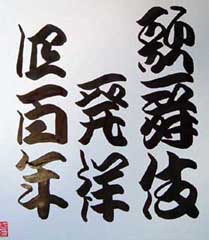 歌舞伎
発祥
四百年